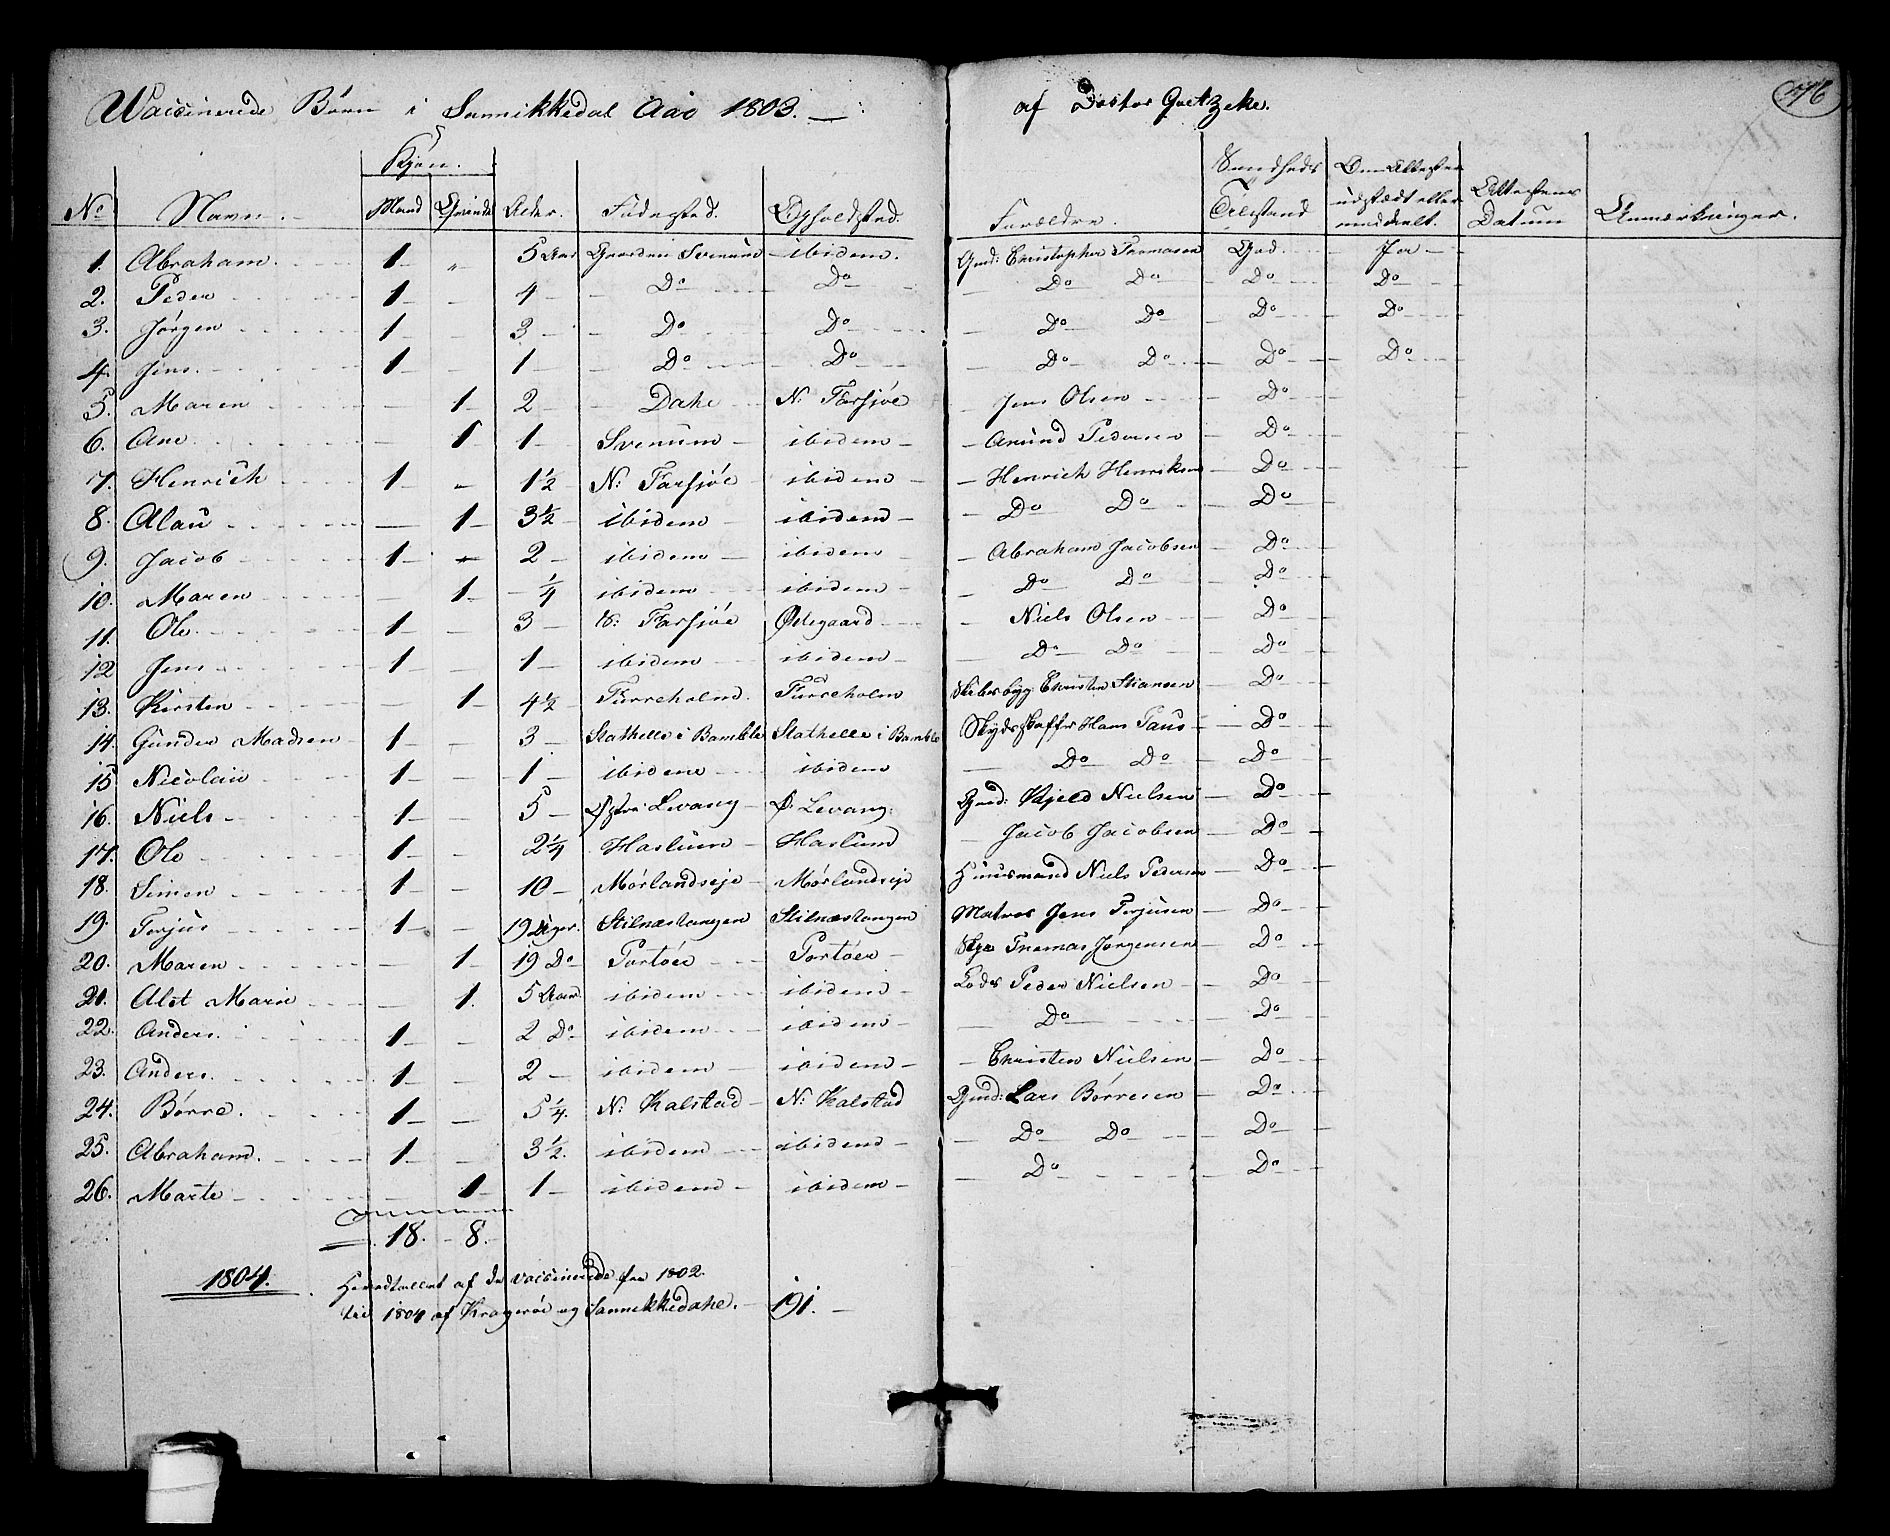 Vaccinerede Børn i Sannikkedal Aao 1803. af Doctor Goetzeke.
Kjøn.
No Navn. Mand Qvinde Alder. Fødested. Opholdsted. Forældre. Sundheds Tilstand Om Attester udstædt eller meddelt. Attestens Datum Anmærkninger.
1. Abraham. 1 " 5 Aar Gaarden Svenum ibidem. Gmd: Christopher Thomasen God Ja
2. Peder 1 4 Do Do Do Do Do Do
3. Jørgen 1 3 Do Do Do Do Do Do
4. Jens. 1 1 Do Do Do Do Do Do
5. Maren 1 2 Dahl N: Farsjøe Jens Olsen Do
6. Ane 1 1 Svenum ibidem Amund Pedersen Do
7. Henrich 1 1½ N: Farsjøe ibidem Henrich Henriksen Do
8. Alau 1 3½ ibidem ibidem Do Do Do
9. Jacob 1 2 ibidem ibidem Abraham Jacobsen Do
10. Maren 1 ¼ ibidem ibidem Do Do Do
11. Ole 1 3 N: Farsjøe Ødegaard Niels Olsen Do
12 Jens 1 1 ibidem ibidem Do Do Do
13. Kirsten 1 4½ Furreholm. Furreholm Christen Stiansen Do
14. Gunder Madsen 1 3 Stathelle i Bamble Stathelle i Bamble Skydsskaffer Hans Taus Do
15 Nicolai 1 1 ibidem ibidem Do Do Do
16. Niels 1 5 Østre Levang Ø: Levang. Gmd: Kjeld Nielsen Do
17. Ole 1 2¼ Haslum Haslum Jacob Jacobsen Do
18. Simen 1 10 Mørlandseje Mørlandseje Huusmand Niels Pedersen Do
19. Torjus 1 19 Uger. Stilnæstangen Stilnæstangen Matros Jens Torjusen Do
20. Maren 1 19 Do Portøer Portøer Thomas Jørgensen Do
21. Alet Marie 1. 5 Aar ibidem ibidem Lods Peder Nielsen Do
22. Anders. 1 2 Do ibidem ibidem Do Do
23. Anders. 1 2 ibidem ibidem Christen Nielsen Do
24. Børre. 1 5¼. N: Kalstad N: Kalstad Gmd: Lars Børresen Do
25. Abraham. 1 3½. ibidem ibidem Do Do Do
26. Marte 1 1 ibidem ibidem Do Do
18. 8.
1804. Hovedtallet af de vaccinerede fra 1802.
til 1804 af Kragerøe og Sannikkedahl. 191.